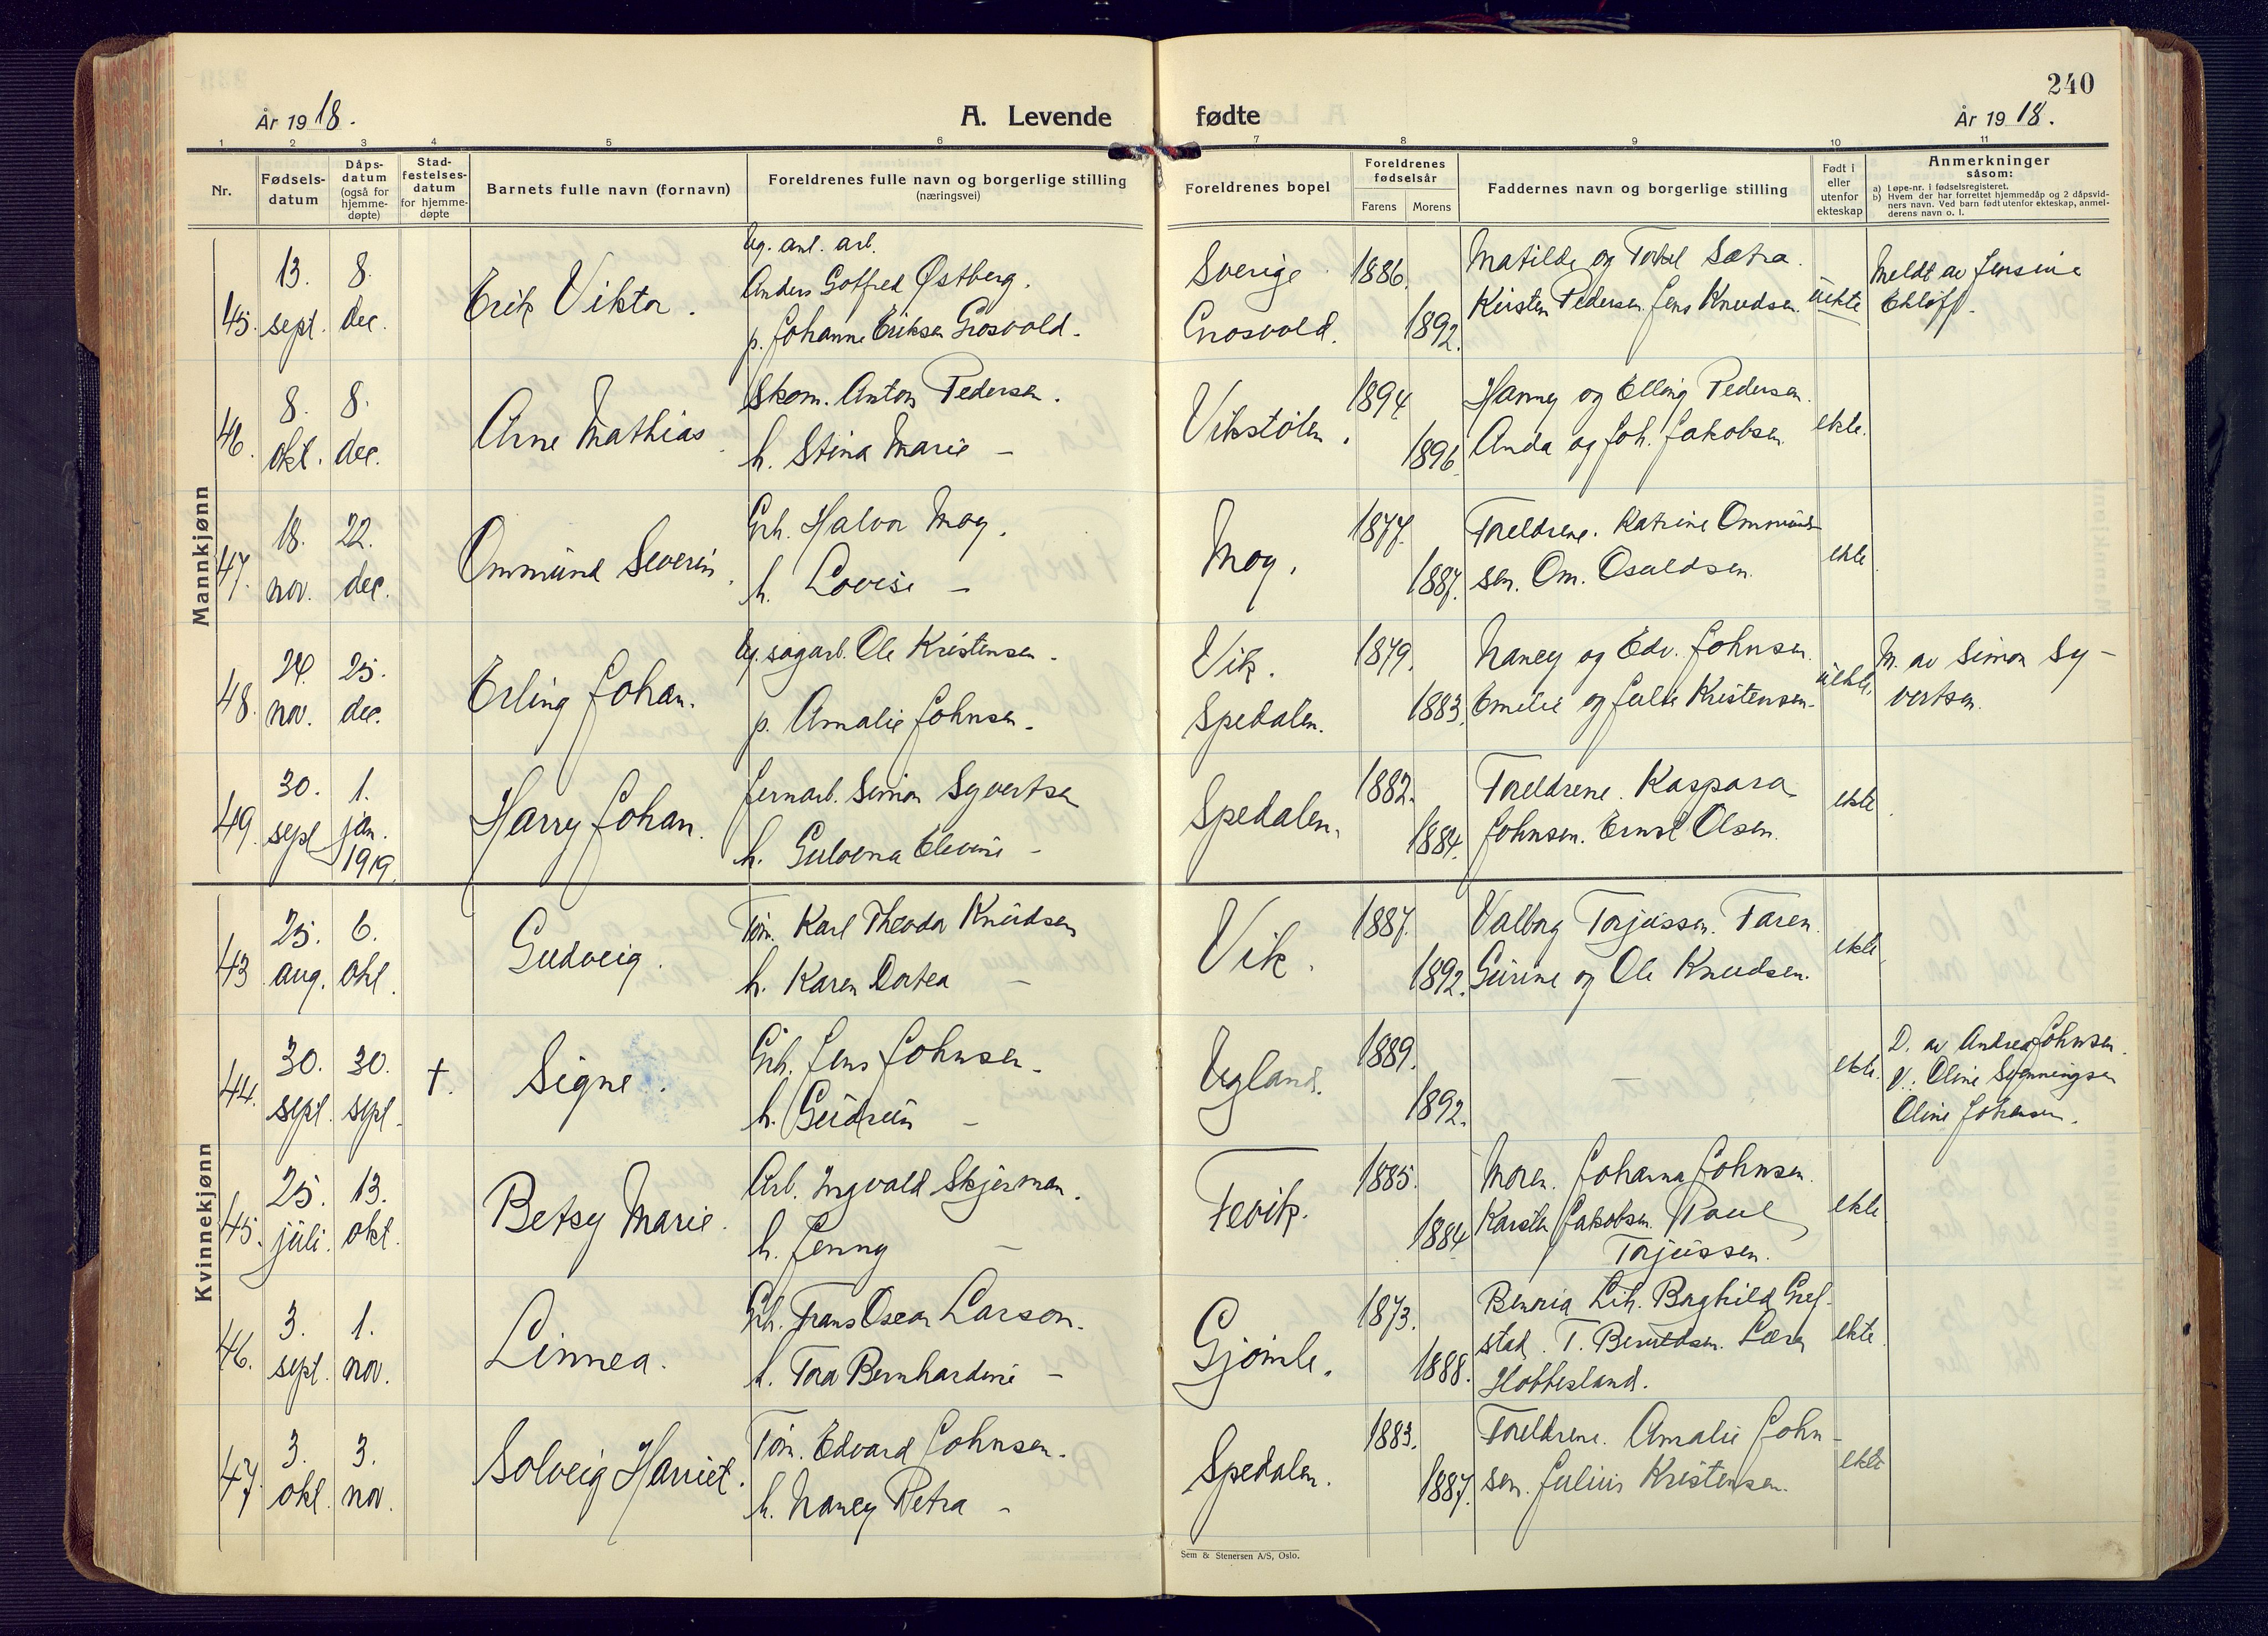 240
År 1918.
A. Levende fødte
År 1918.
1 2 3 4 5 6 7 8 9 10 11
Nr.
Fødsels-
datum
Dåps-
datum
(også for
hjemme-
døpte)
Stad-
festelses-
datum
for hjemme-
døpte
Barnets fulle navn (fornavn)
Foreldrenes fulle navn og borgerlige stilling
(næringsvei)
Foreldrenes bopel
Foreldrenes
fødselsår
Farens
Morens
Faddernes navn og borgerlige stilling
Født i
eller
utenfor
ekteskap
Anmerkninger
såsom:
a) Løpe-nr. i fødselsregisteret.
b) Hvem der har forrettet hjemmedåp og 2 dåpsvid-
ners navn. Ved barn født utenfor ekteskap, anmel-
derens navn o. l.
Mannkjønn
45.
13.
sept.
8.
dec.
Erik Viktor.
Ug. anl. arb.
Anders Gotfred Østberg.
p. Johanne Eriksen Grosvold.
Sverige
Grosvold.
1886.
1892.
Matilde og Torkel Sætra.
Kirsten Pedersen. Jens Knudsen.
uekte
Meldt av Jensine
Ekløff.
46.
8.
okt.
8.
dec.
Arne Mathias
Skom. Anton Pedersen.
h. Stina Marie –
Vikstølen.
1894
1896.
Hanny og Elling Pedersen.
Anda og Joh. Jakobsen.
ekte.
47.
18.
nov.
22.
dec.
Ommund Severin.
Grh. Halvor Moy.
h. Lovise –
Moy.
1877.
1887.
Foreldrene. Katrine Ommund-
sen. Om. Osuldsen.
ekte
48.
24.
nov.
25.
dec.
Erling Johan.
Ug. sagarb. Ole Kristensen.
p. Amalie Johnsen.
Vik.
Spedalen.
1879.
1883.
Nancy og Edv. Johnsen.
Emilie og Julie Kristensen.
uekte.
M. av Simon Sy-
vertsen.
49.
30.
sept
1.
jan.
1919.
Harry Johan.
Jernarb. Simon Syvertsen
h. Gulovna Elevine –
Spedalen.
1882.
1884.
Foreldrene. Kaspara
Johnsen. Ernst Olsen.
ekte
Kvinnekjønn
43
25.
aug.
6.
okt.
Gudveig.
Tøm. Karl Theodor Knudsen
h. Karen Dortea –
Vik.
1887.
1892.
Valborg Torjussen. Faren.
Gurine og Ole Knudsen.
ekte
44.
30.
sept.
30.
sept.
†.
Signe.
Grh. Jens Johnsen.
h. Gudrun –
Ugland.
1889.
1892.
–
ekte.
D. av Andrea Johnsen.
V.: Oline Svenningsen
Oline Johnsen.
45.
25.
juli.
13.
okt.
Betsy Marie.
Arb. Ingvald Skjerman.
h. Jenny –
Fevik.
1885.
1884
Moren. Johanna Johnsen.
Karsten Jakobsen. Paul
Torjussen.
ekte
46.
3.
sept.
1.
nov.
Linnea.
Grh. Frans Oscar Larson.
h. Tora Bernhardine –
Gjømle.
1873.
1888.
Benoria Lih. Borghild Gref-
stad. T. Berntsen. Lars
Hobbesland.
ekte
47.
3.
okt.
3.
nov.
Solveig Harriet.
Tøm. Edvard Johnsen.
h. Nancy Petra –
Spedalen.
1883.
1887.
Foreldrene. Amalie John-
sen. Julius Kristensen.
ekte
Sem & Stenersen A/S, Oslo.